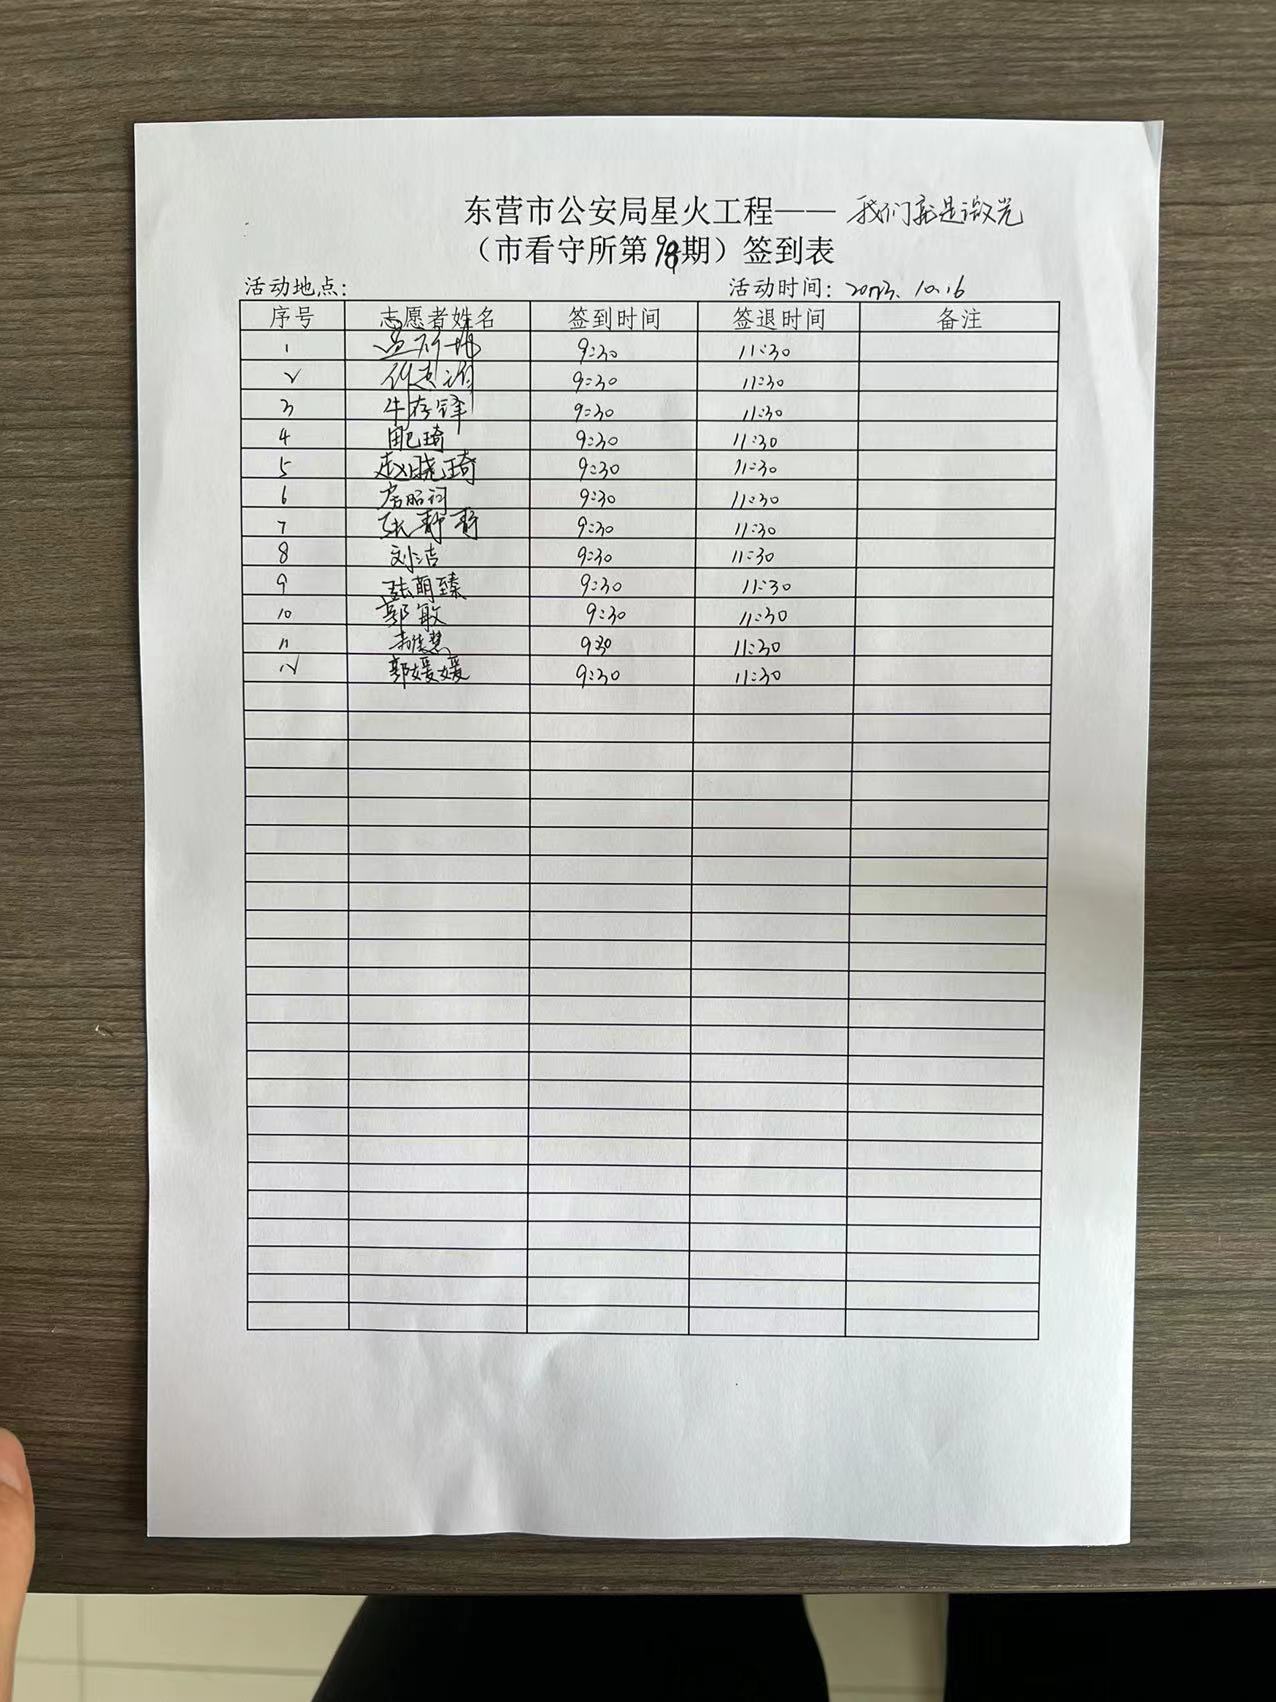 东营市公安局星火工程—— 我们就是微光
（市看守所第98期）签到表
活动地点： 活动时间：2023.10.16
序号 志愿者姓名 签到时间 签退时间 备注
1 9:30 11:30
2 9:30 11:30
3 牛存锋 9:30 11:30
4 9:30 11:30
5 赵晓琦 9:30 11:30
6 房昭词 9:30 11:30
7 张静静 9:30 11:30
8 刘洁 9:30 11:30
9 张萌臻 9:30 11:30
10 郭敏 9:30 11:30
11 9:30 11:30
12 郭媛媛 9:30 11:30